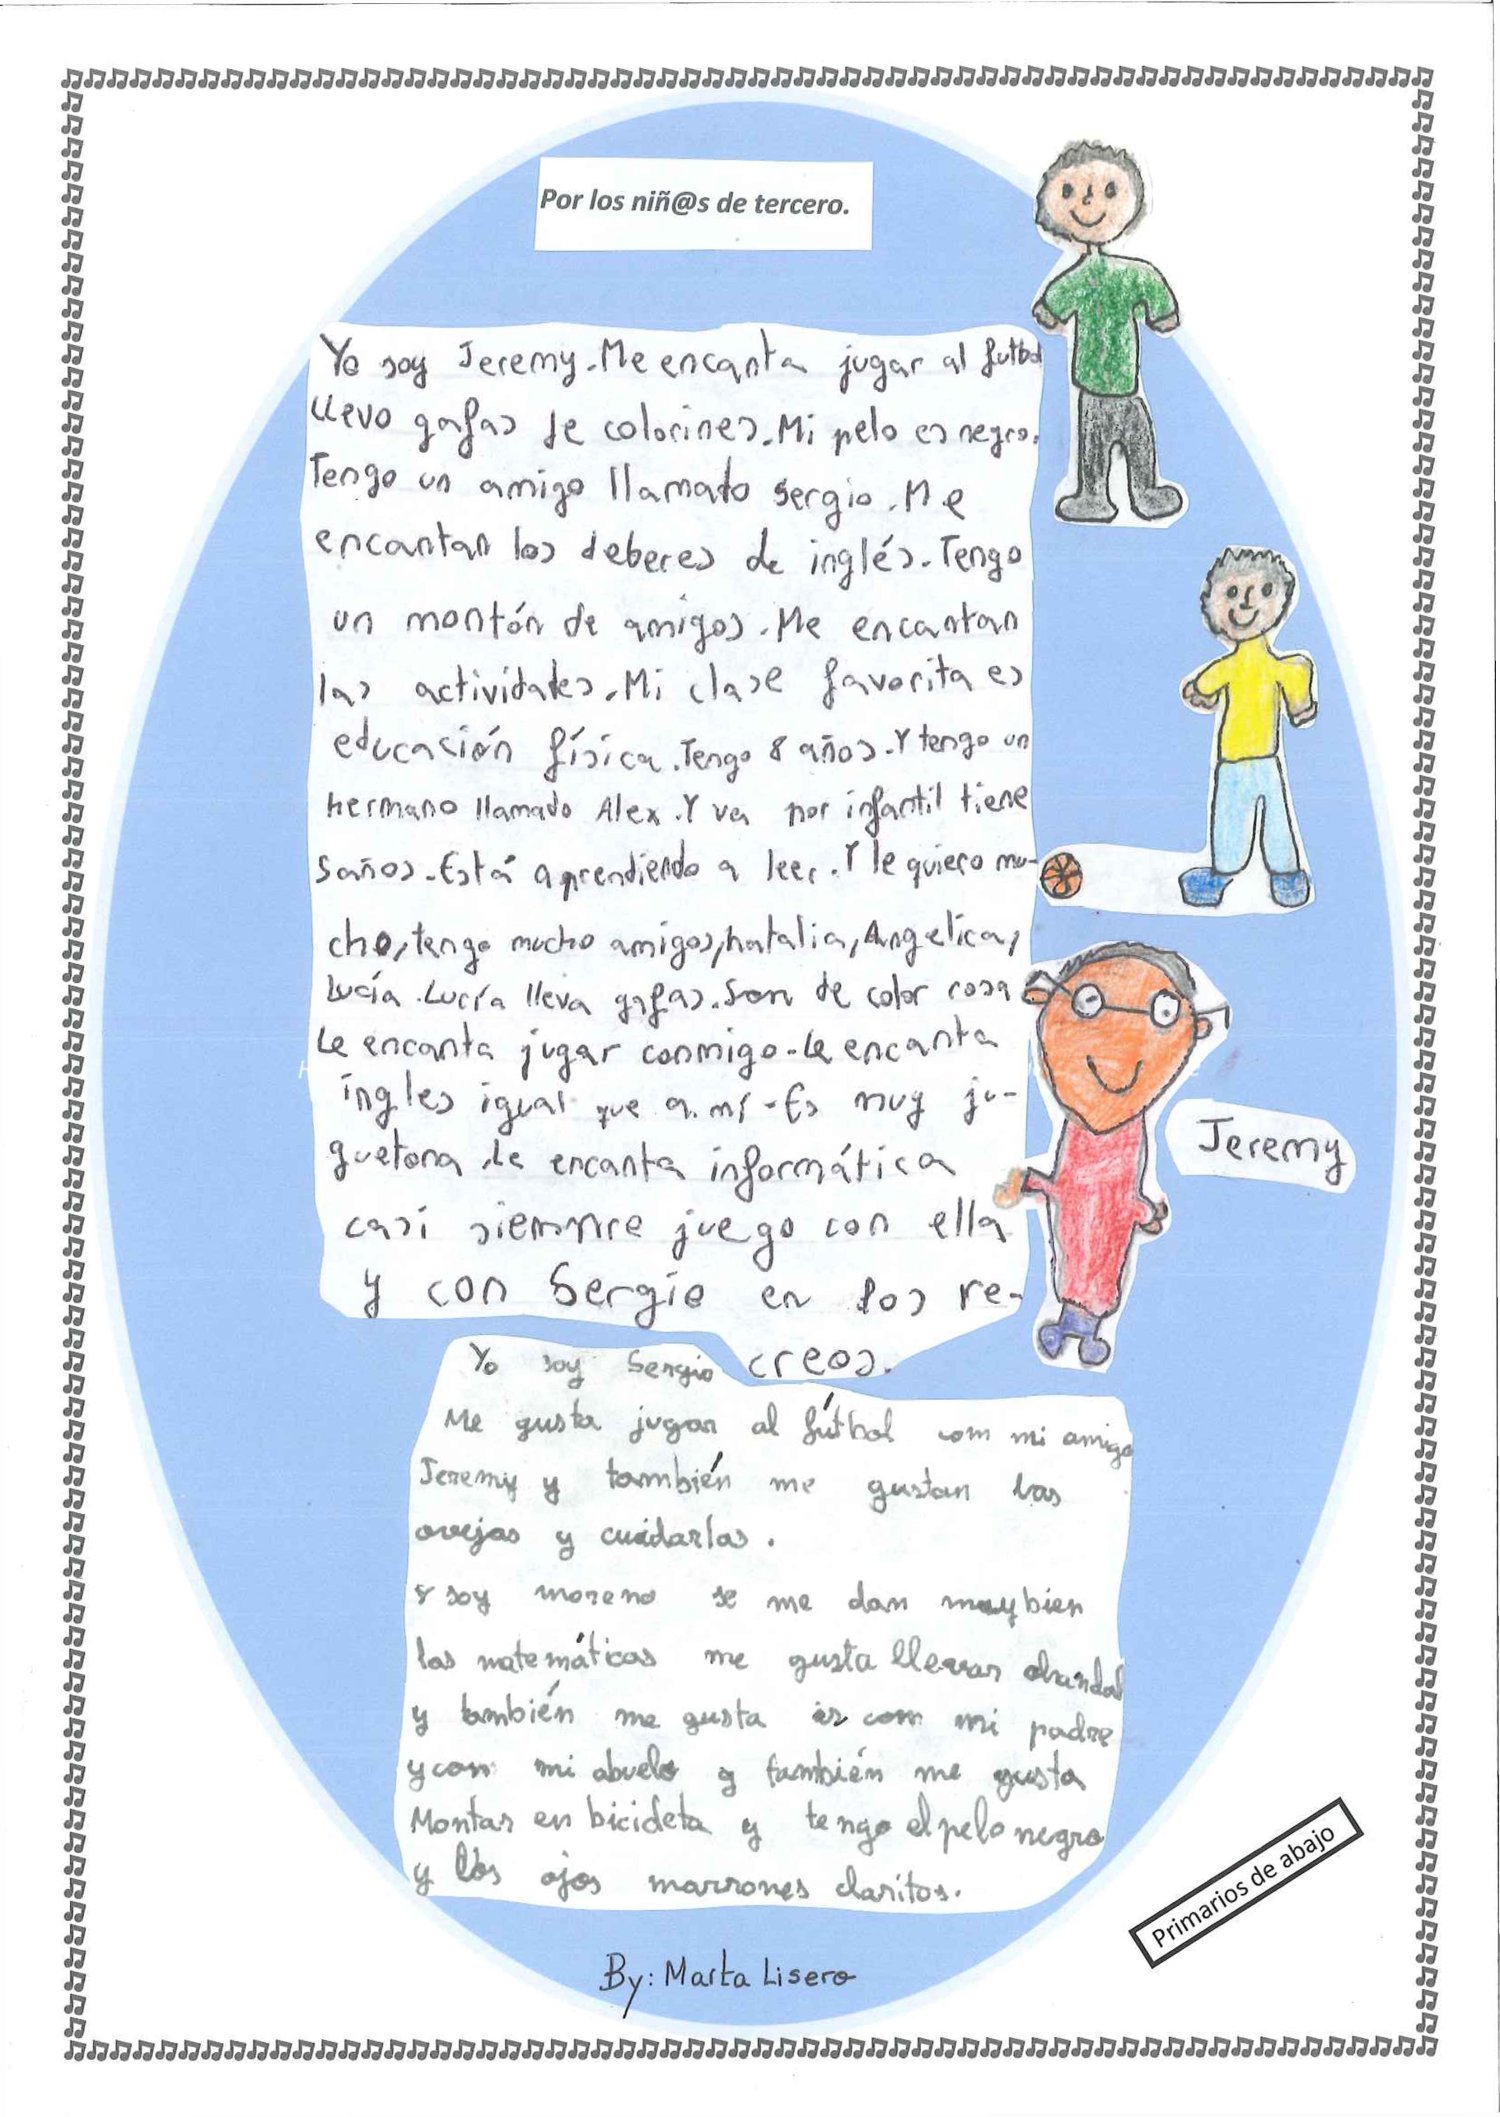 Por los niñ@s de tercero.
Yo soy Jeremy. Me encanta jugar al futbol
llevo gafas de colorines. Mi pelo es negro.
Tengo un amigo llamado Sergio. Me
encantan los deberes de inglés. Tengo
un montón de amigos. Me encantan
las actividades. Mi clase favorita es
educación física. Tengo 8 años. Y tengo un
hermano llamado Alex. Y va por infantil tiene
5 años. Está aprendiendo a leer. Y le quiero mu-
cho, tengo mucho amigos, natalia, Angelica,
Lucía. Lucía lleva gafas. Son de color rosa
Le encanta jugar conmigo. Le encanta
ingles igual que a mí. Es muy ju-
guetona. Le encanta informática
casi siempre juego con ella
y con Sergio en los re-
creos.
Jeremy
Yo soy Sergio
Me gusta jugar al fútbol com mi amigo
Jeremy y también me gustan las
ovejas y cuidarlas.
Y soy moreno se me dan muy bien
las matemáticas me gusta llevar chandal
y también me gusta ir com mi padre
y con mi abuelo y también me gusta
Montar en bicideta y tengo el pelo negro
y los ojos marrones claritos.
Primarios de abajo
By: Marta Lisero